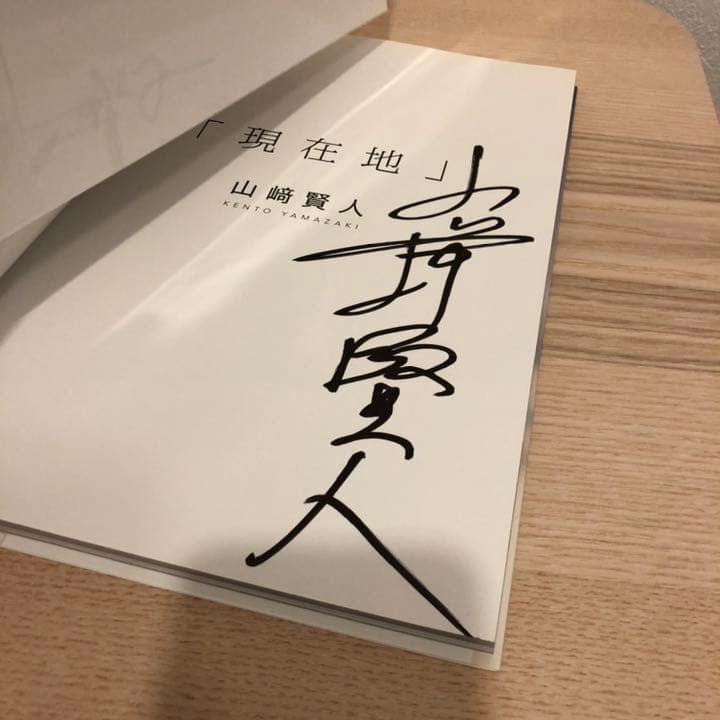 「現在地」
山﨑賢人
KENTO YAMAZAKI
山﨑賢人